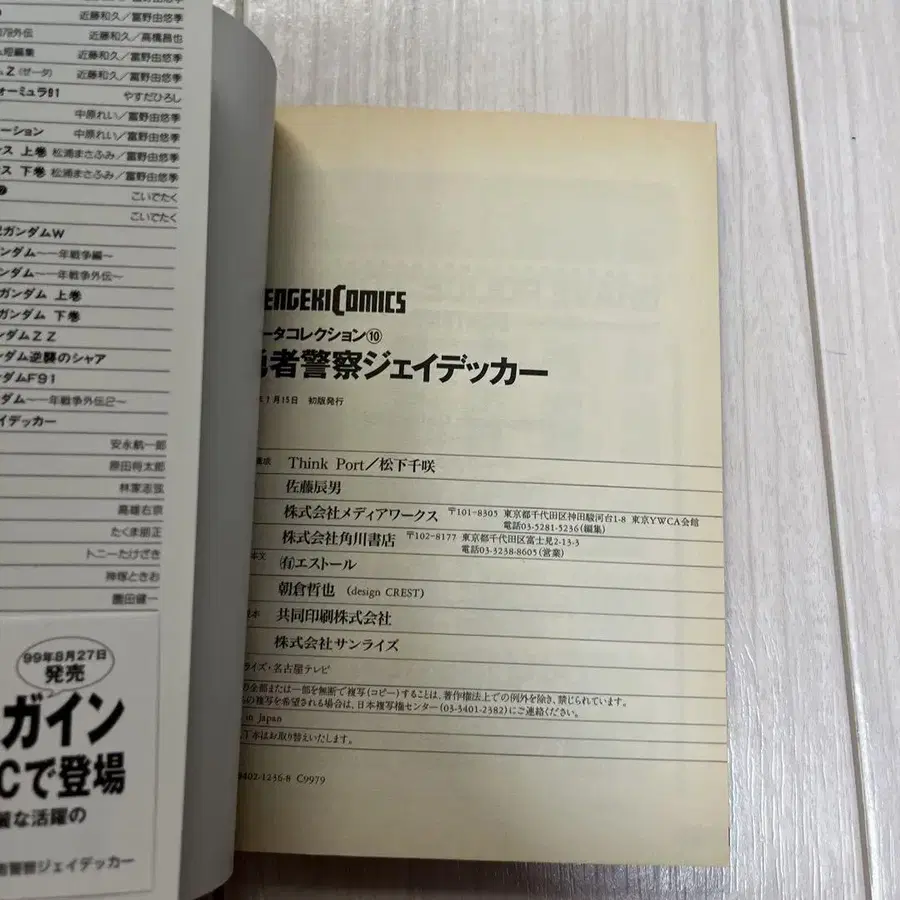 近藤和久／富野由悠季
079外伝 近藤和久／高橋昌也
ム短編集 近藤和久／富野由悠季
ムZ（ゼータ） 近藤和久／富野由悠季
ォーミュラ91 やすだひろし
中原れい／富野由悠季
ーション 中原れい／富野由悠季
ンス 上巻 松浦まさふみ／富野由悠季
ス 下巻 松浦まさふみ／富野由悠季
こいでたく
こいでたく
ガンダムW
ンダム～一年戦争編～
ンダム～一年戦争外伝～
ガンダム 上巻
ガンダム 下巻
ンダムZZ
ンダム逆襲のシャア
ダムF91
ダム～一年戦争外伝2～
イデッカー
安永航一郎
原田将太郎
林家志弦
高雄右京
たくま朋正
トニーたけざき
神塚ときお
園田健一
99年8月27日
発売
ガイン
Cで登場
な活躍の
者警察ジェイデッカー
ENGEKICOMICS
ータコレクション⑩
者警察ジェイデッカー
1月15日 初版発行
Think Port／松下千咲
佐藤辰男
株式会社メディアワークス 〒101-8305 東京都千代田区神田駿河台1-8 東京YWCA会館
電話03-5281-5236(編集)
株式会社角川書店 〒102-8177 東京都千代田区富士見2-13-3
電話03-3238-8605(営業)
本文 ㈲エストール
朝倉哲也 (design CREST)
本 共同印刷株式会社
株式会社サンライズ
ライズ・名古屋テレビ
の全部または一部を無断で複写(コピー)することは、著作権法上での例外を除き、禁じられています。
の複写を希望される場合は、日本複写権センター(03-3401-2382)にご連絡ください。
in Japan
丁本はお取り替えいたします。
8402-1236-8 C9979